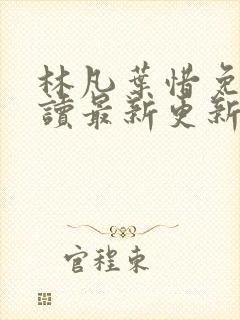 林凡葉惜免
讀最新更新
官程東